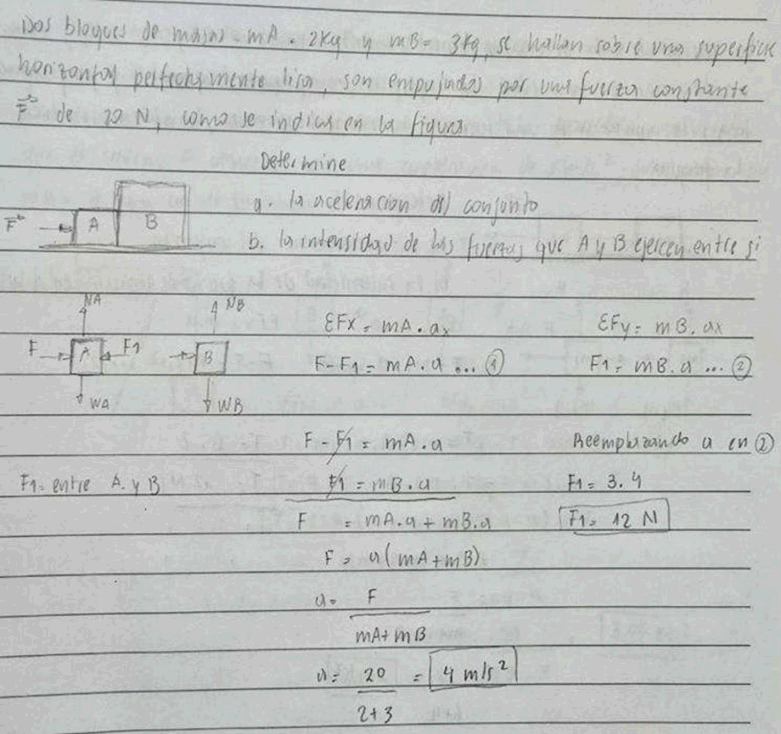 Dos bloques de masas mA = 2Kg y mB = 3Kg, se hallan sobre una superficie
horizontal perfectamente lisa, son empujados por una fuerza constante
F de 20 N, como se indica en la figura
Determine
a. la aceleracion del conjunto
b. la intensidad de las fuerzas que A y B ejercen entre si
F A B
NA NB
F A F1 B
WA WB
ƐFx = mA . ax
F - F1 = mA . a ... ①
ƐFy = mB . ax
F1 = mB . a ... ②
F1 = entre A y B
F - F1 = mA . a
F1 = mB . a
F = mA.a + mB.a
F = a(mA+mB)
a = F
mA+mB
a = 20 = 4 m/s²
2+3
Reemplazando a en ②
F1 = 3.4
F1 = 12 N